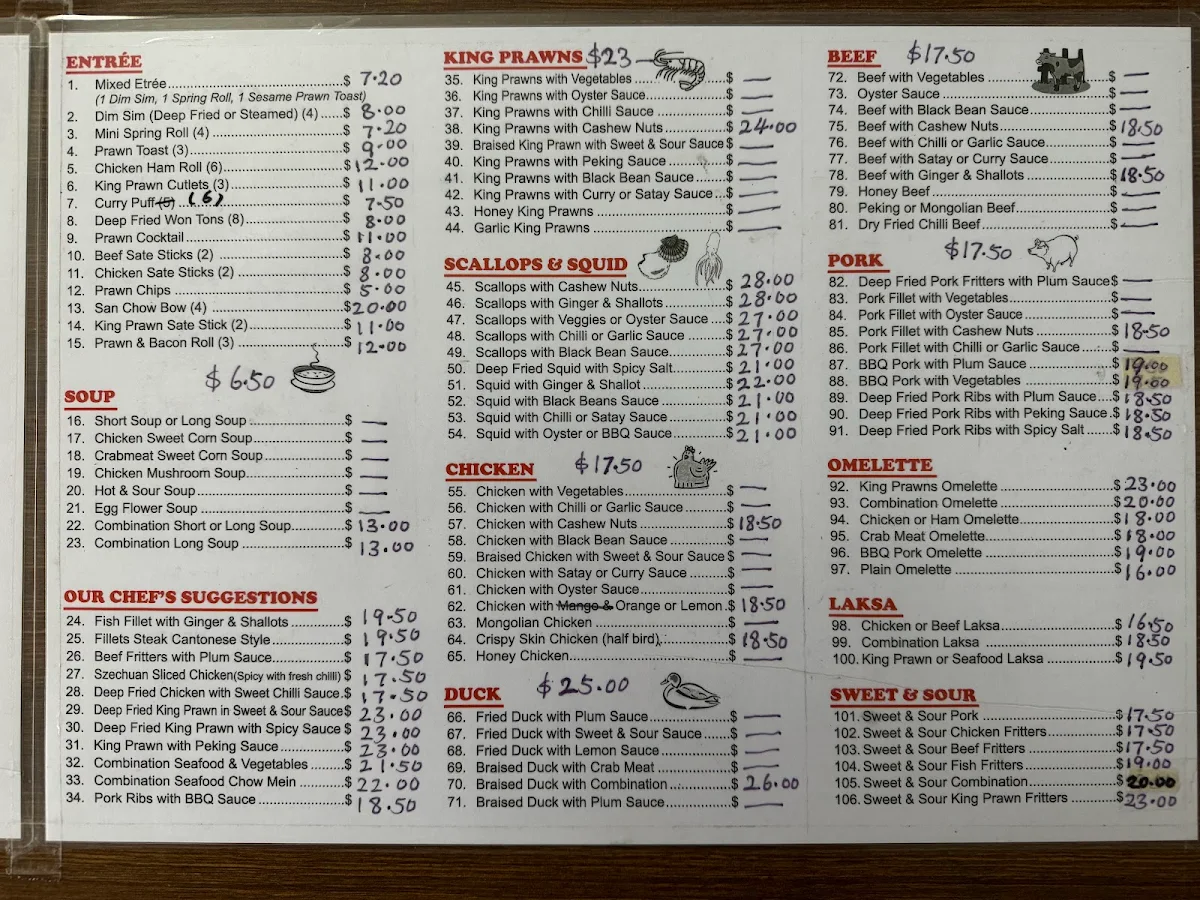 ENTRÉE
1. Mixed Etrée $ 7.20
(1 Dim Sim, 1 Spring Roll, 1 Sesame Prawn Toast)
2. Dim Sim (Deep Fried or Steamed) (4) $ 8.00
3. Mini Spring Roll (4) $ 7.20
4. Prawn Toast (3) $ 9.00
5. Chicken Ham Roll (6) $ 12.00
6. King Prawn Cutlets (3) $ 11.00
7. Curry Puff (5) (6) $ 7.50
8. Deep Fried Won Tons (8) $ 8.00
9. Prawn Cocktail $ 11.00
10. Beef Sate Sticks (2) $ 8.00
11. Chicken Sate Sticks (2) $ 8.00
12. Prawn Chips $ 5.00
13. San Chow Bow (4) $ 20.00
14. King Prawn Sate Stick (2) $ 11.00
15. Prawn & Bacon Roll (3) $ 12.00
SOUP $6.50
16. Short Soup or Long Soup $ —
17. Chicken Sweet Corn Soup $ —
18. Crabmeat Sweet Corn Soup $ —
19. Chicken Mushroom Soup $ —
20. Hot & Sour Soup $ —
21. Egg Flower Soup $ —
22. Combination Short or Long Soup $ 13.00
23. Combination Long Soup $ 13.00
OUR CHEF'S SUGGESTIONS
24. Fish Fillet with Ginger & Shallots $ 19.50
25. Fillets Steak Cantonese Style $ 19.50
26. Beef Fritters with Plum Sauce $ 17.50
27. Szechuan Sliced Chicken(Spicy with fresh chilli) $ 17.50
28. Deep Fried Chicken with Sweet Chilli Sauce $ 17.50
29. Deep Fried King Prawn in Sweet & Sour Sauce $ 23.00
30. Deep Fried King Prawn with Spicy Sauce $ 23.00
31. King Prawn with Peking Sauce $ 23.00
32. Combination Seafood & Vegetables $ 21.50
33. Combination Seafood Chow Mein $ 22.00
34. Pork Ribs with BBQ Sauce $ 18.50
KING PRAWNS $23
35. King Prawns with Vegetables $ —
36. King Prawns with Oyster Sauce $ —
37. King Prawns with Chilli Sauce $ —
38. King Prawns with Cashew Nuts $ 24.00
39. Braised King Prawn with Sweet & Sour Sauce $ —
40. King Prawns with Peking Sauce $ —
41. King Prawns with Black Bean Sauce $ —
42. King Prawns with Curry or Satay Sauce $ —
43. Honey King Prawns $ —
44. Garlic King Prawns $ —
SCALLOPS & SQUID
45. Scallops with Cashew Nuts $ 28.00
46. Scallops with Ginger & Shallots $ 28.00
47. Scallops with Veggies or Oyster Sauce $ 27.00
48. Scallops with Chilli or Garlic Sauce $ 27.00
49. Scallops with Black Bean Sauce $ 27.00
50. Deep Fried Squid with Spicy Salt $ 21.00
51. Squid with Ginger & Shallot $ 22.00
52. Squid with Black Beans Sauce $ 21.00
53. Squid with Chilli or Satay Sauce $ 21.00
54. Squid with Oyster or BBQ Sauce $ 21.00
CHICKEN $17.50
55. Chicken with Vegetables $ —
56. Chicken with Chilli or Garlic Sauce $ —
57. Chicken with Cashew Nuts $ 18.50
58. Chicken with Black Bean Sauce $ —
59. Braised Chicken with Sweet & Sour Sauce $ —
60. Chicken with Satay or Curry Sauce $ —
61. Chicken with Oyster Sauce $ —
62. Chicken with Mango & Orange or Lemon $ 18.50
63. Mongolian Chicken $ —
64. Crispy Skin Chicken (half bird) $ 18.50
65. Honey Chicken $ —
DUCK $25.00
66. Fried Duck with Plum Sauce $ —
67. Fried Duck with Sweet & Sour Sauce $ —
68. Fried Duck with Lemon Sauce $ —
69. Braised Duck with Crab Meat $ —
70. Braised Duck with Combination $ 26.00
71. Braised Duck with Plum Sauce $ —
BEEF $17.50
72. Beef with Vegetables $ —
73. Oyster Sauce $ —
74. Beef with Black Bean Sauce $ —
75. Beef with Cashew Nuts $ 18.50
76. Beef with Chilli or Garlic Sauce $ —
77. Beef with Satay or Curry Sauce $ —
78. Beef with Ginger & Shallots $ 18.50
79. Honey Beef $ —
80. Peking or Mongolian Beef $ —
81. Dry Fried Chilli Beef $ —
PORK $17.50
82. Deep Fried Pork Fritters with Plum Sauce $ —
83. Pork Fillet with Vegetables $ —
84. Pork Fillet with Oyster Sauce $ —
85. Pork Fillet with Cashew Nuts $ 18.50
86. Pork Fillet with Chilli or Garlic Sauce $ —
87. BBQ Pork with Plum Sauce $ 19.00
88. BBQ Pork with Vegetables $ 19.00
89. Deep Fried Pork Ribs with Plum Sauce $ 18.50
90. Deep Fried Pork Ribs with Peking Sauce $ 18.50
91. Deep Fried Pork Ribs with Spicy Salt $ 18.50
OMELETTE
92. King Prawns Omelette $ 23.00
93. Combination Omelette $ 20.00
94. Chicken or Ham Omelette $ 18.00
95. Crab Meat Omelette $ 18.00
96. BBQ Pork Omelette $ 19.00
97. Plain Omelette $ 16.00
LAKSA
98. Chicken or Beef Laksa $ 16.50
99. Combination Laksa $ 18.50
100. King Prawn or Seafood Laksa $ 19.50
SWEET & SOUR
101. Sweet & Sour Pork $ 17.50
102. Sweet & Sour Chicken Fritters $ 17.50
103. Sweet & Sour Beef Fritters $ 17.50
104. Sweet & Sour Fish Fritters $ 19.00
105. Sweet & Sour Combination $ 20.00
106. Sweet & Sour King Prawn Fritters $ 23.00